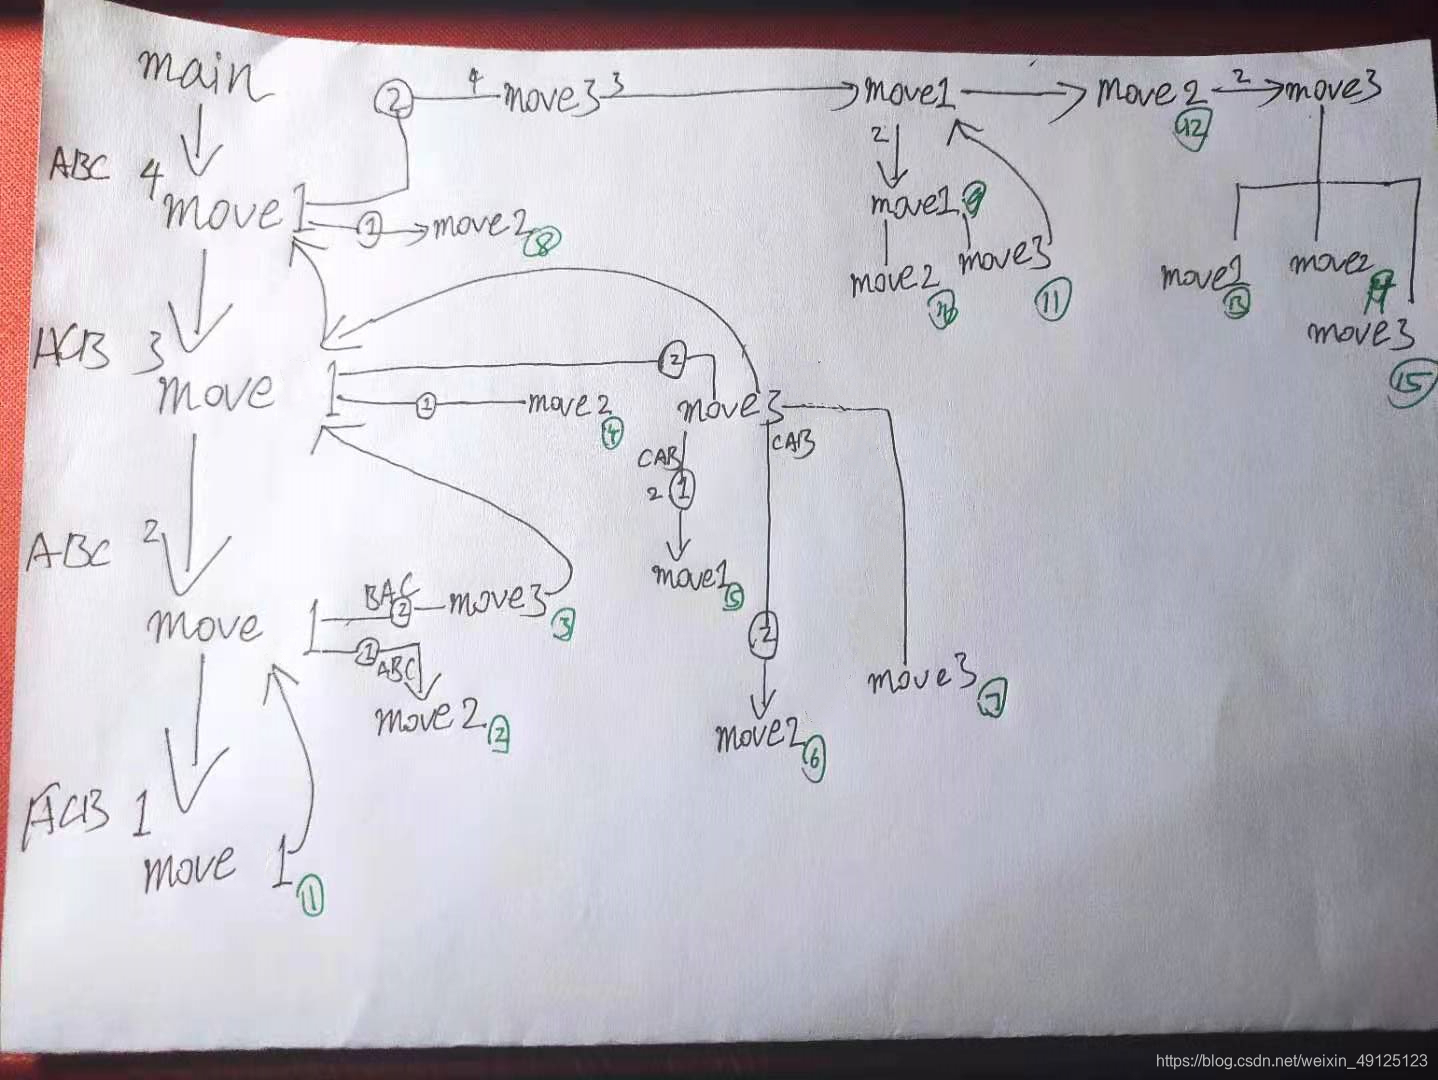 main
② 4 move3 3 move1 move2 2 move3
⑫
ABC 4 move1
① move2 ⑧
2
move1 ⑨
move2 ⑩ move3 ⑪
move1 ⑬ move2 ⑭
move3 ⑮
ACB 3
move 1
②
① move2 ④
move3
CAB CAB
2 ①
move1 ⑤
②
move2 ⑥
move3 ⑦
ABC 2
move 1
BAC ② move3 ③
① ABC
move2 ②
ACB 1
move 1 ⑪
https://blog.csdn.net/weixin_49125123